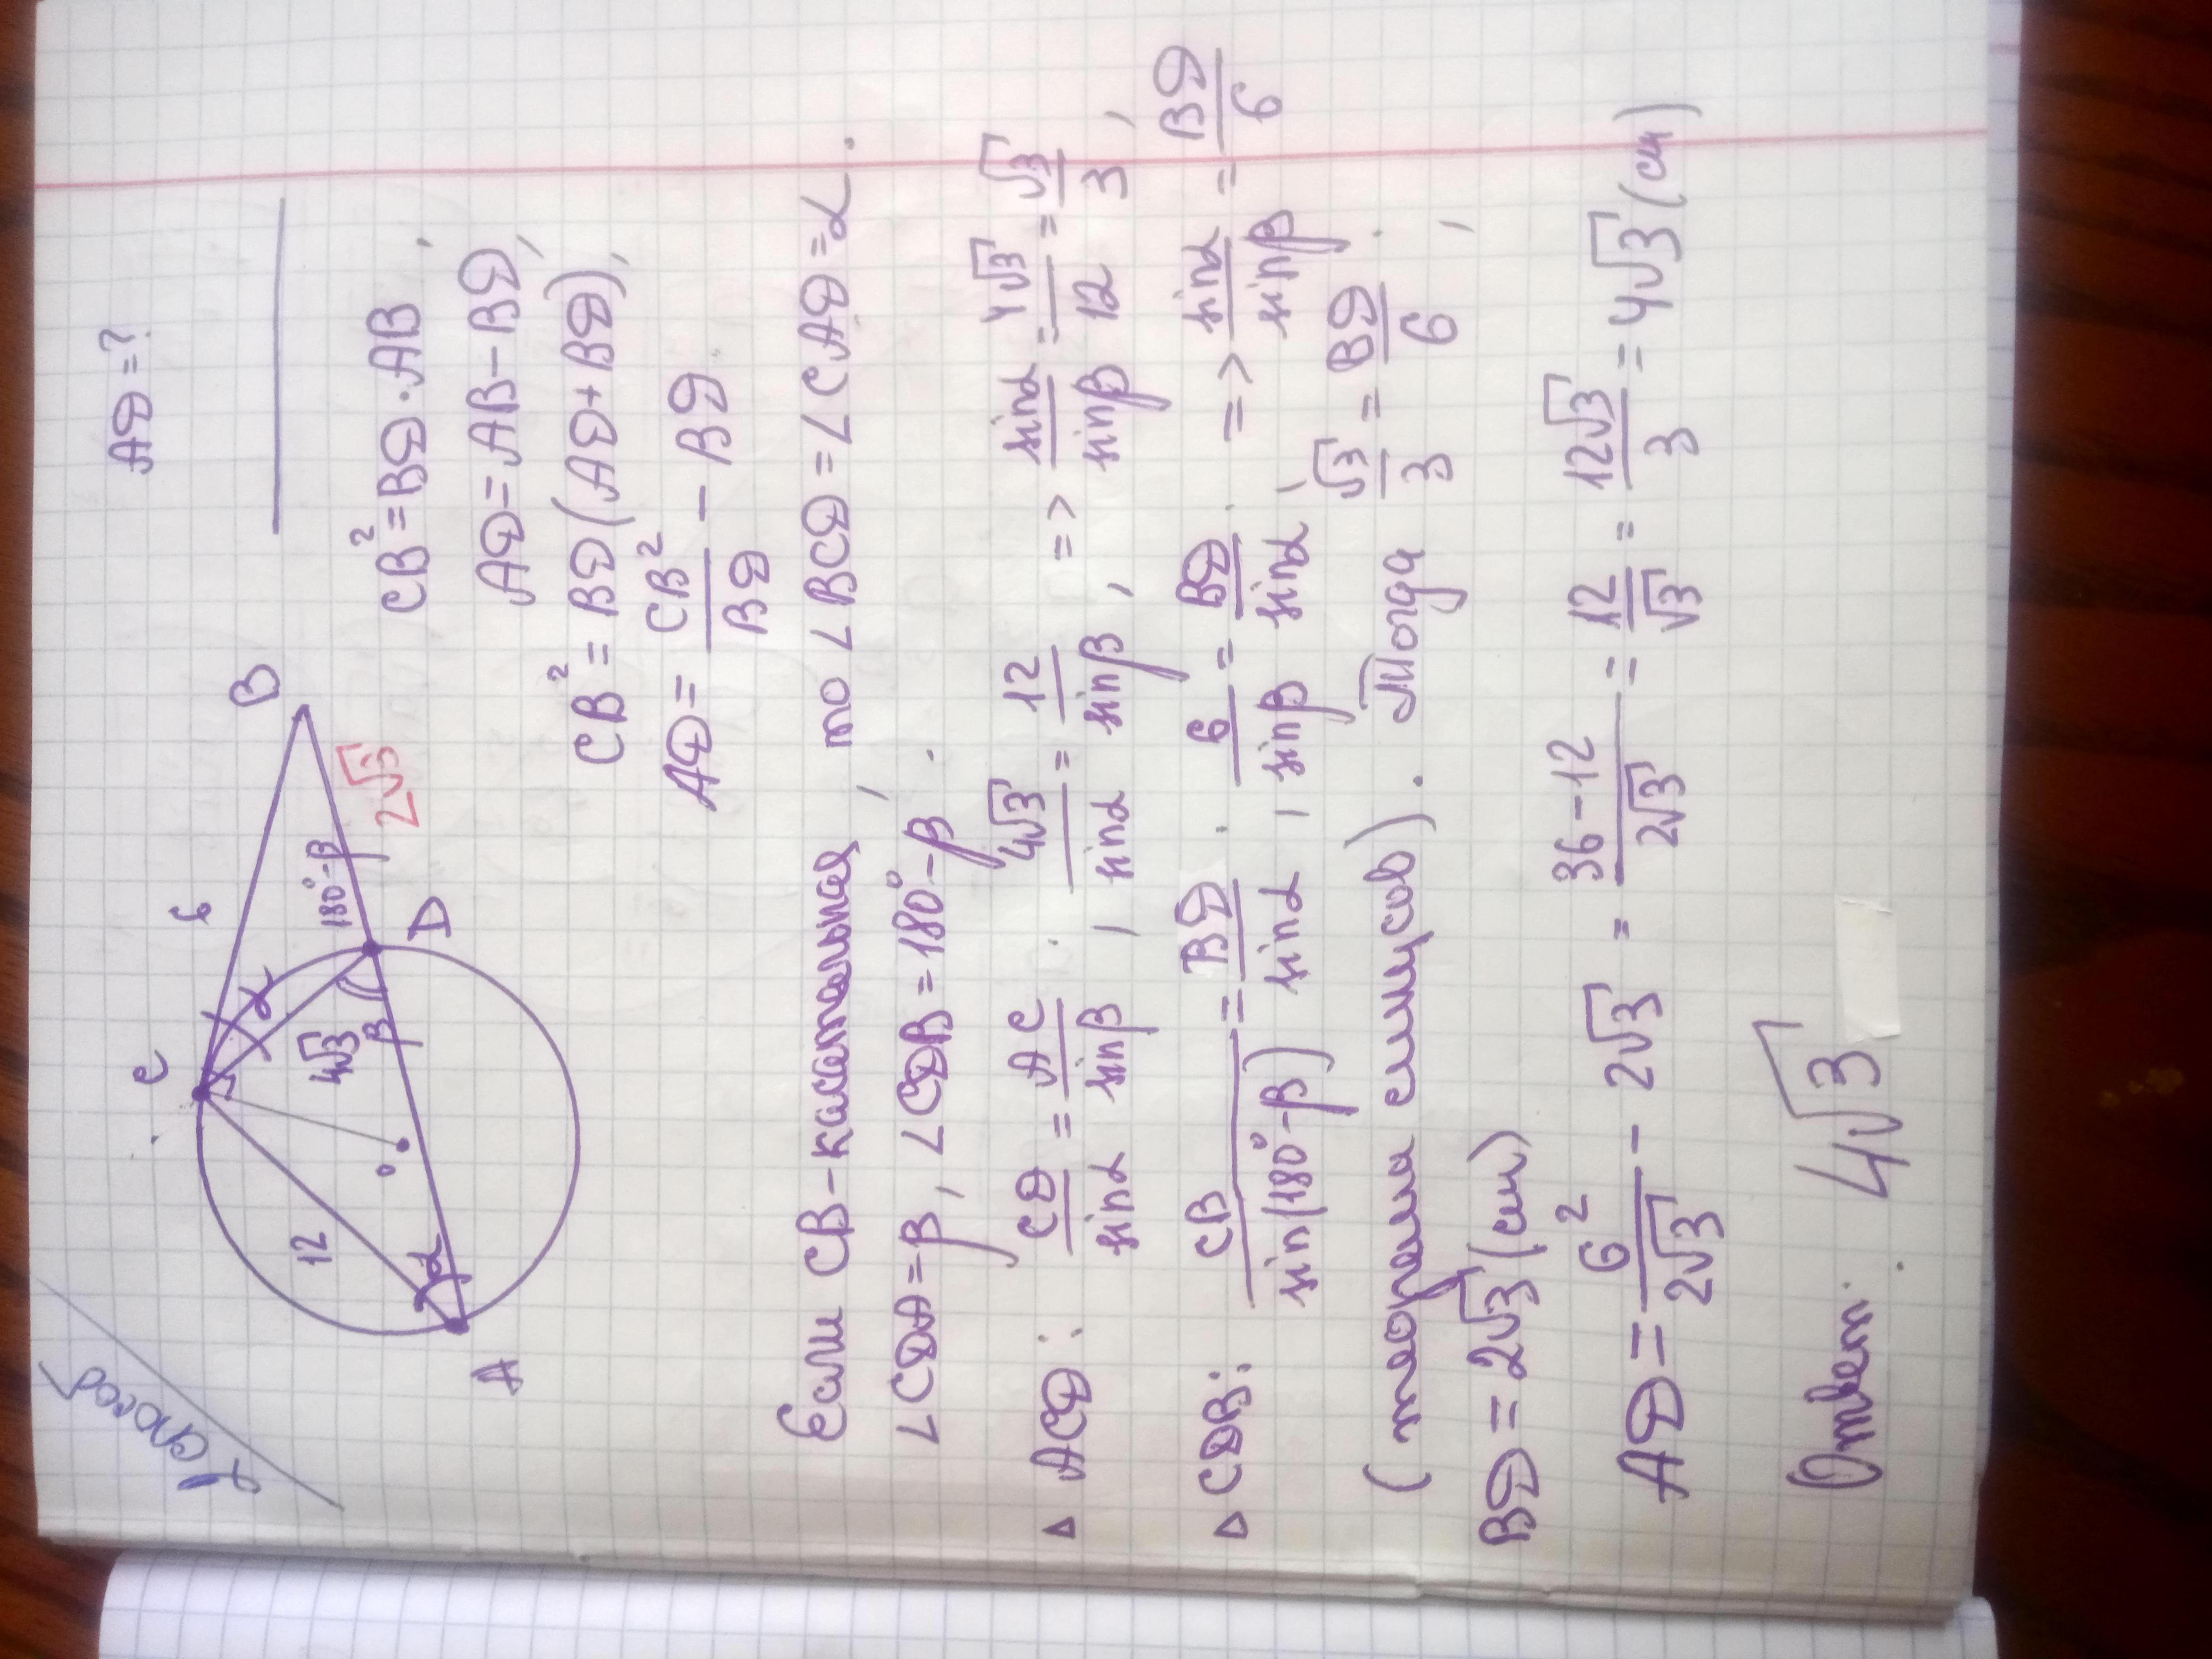 1 способ
AD=?
C
6
B
12
4√3
α
180°-β
2√3
o
β
α
D
A
CB²=BD·AB,
AD=AB-BD,
CB²=BD(AD+BD),
AD=CB²/BD - BD.
Если CB-касательная, то ∠BCD=∠CAD=α.
∠CDA=β, ∠CDB=180°-β.
△ ACD: CD/sinα = AC/sinβ, 4√3/sinα = 12/sinβ, => sinα/sinβ = 4√3/12 = √3/3,
△ CDB: CB/sin(180°-β) = BD/sinα, 6/sinβ = BD/sinα, => sinα/sinβ = BD/6
(теорема синусов). Тогда √3/3 = BD/6,
BD=2√3(см)
AD=6²/2√3 - 2√3 = 36-12/2√3 = 12/√3 = 12√3/3 = 4√3(см)
Ответ: 4√3